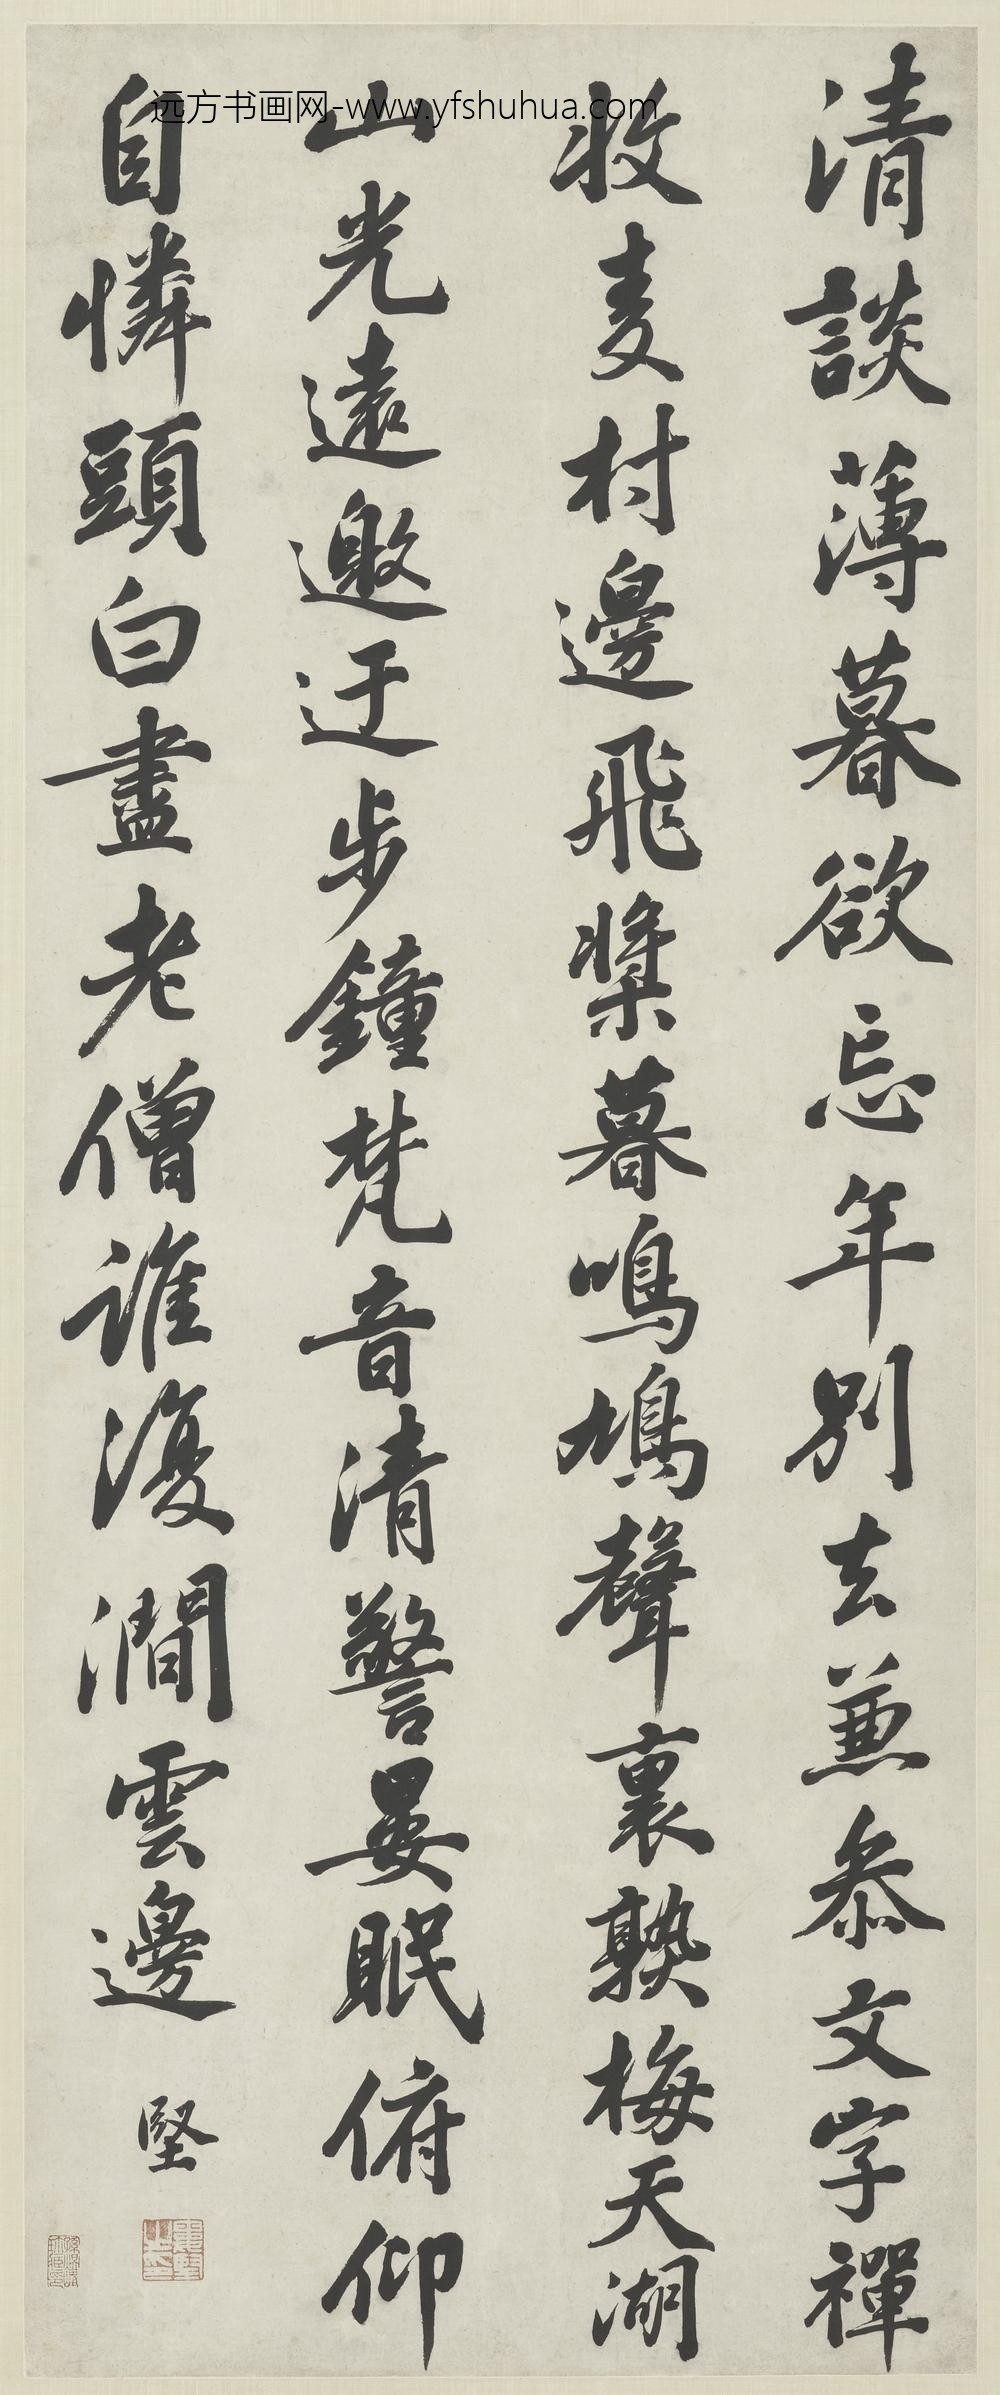 远方书画网-www.yfshuhua.com
清談薄暮欲忘年別去兼叅文字禪
收麦村邊飛槳暮鳴鳩聲裏熟梅天湖
山光遠邀迂步鐘梵音清警晏眠俯仰
自憐頭白盡老僧誰復澗雲邊
堅